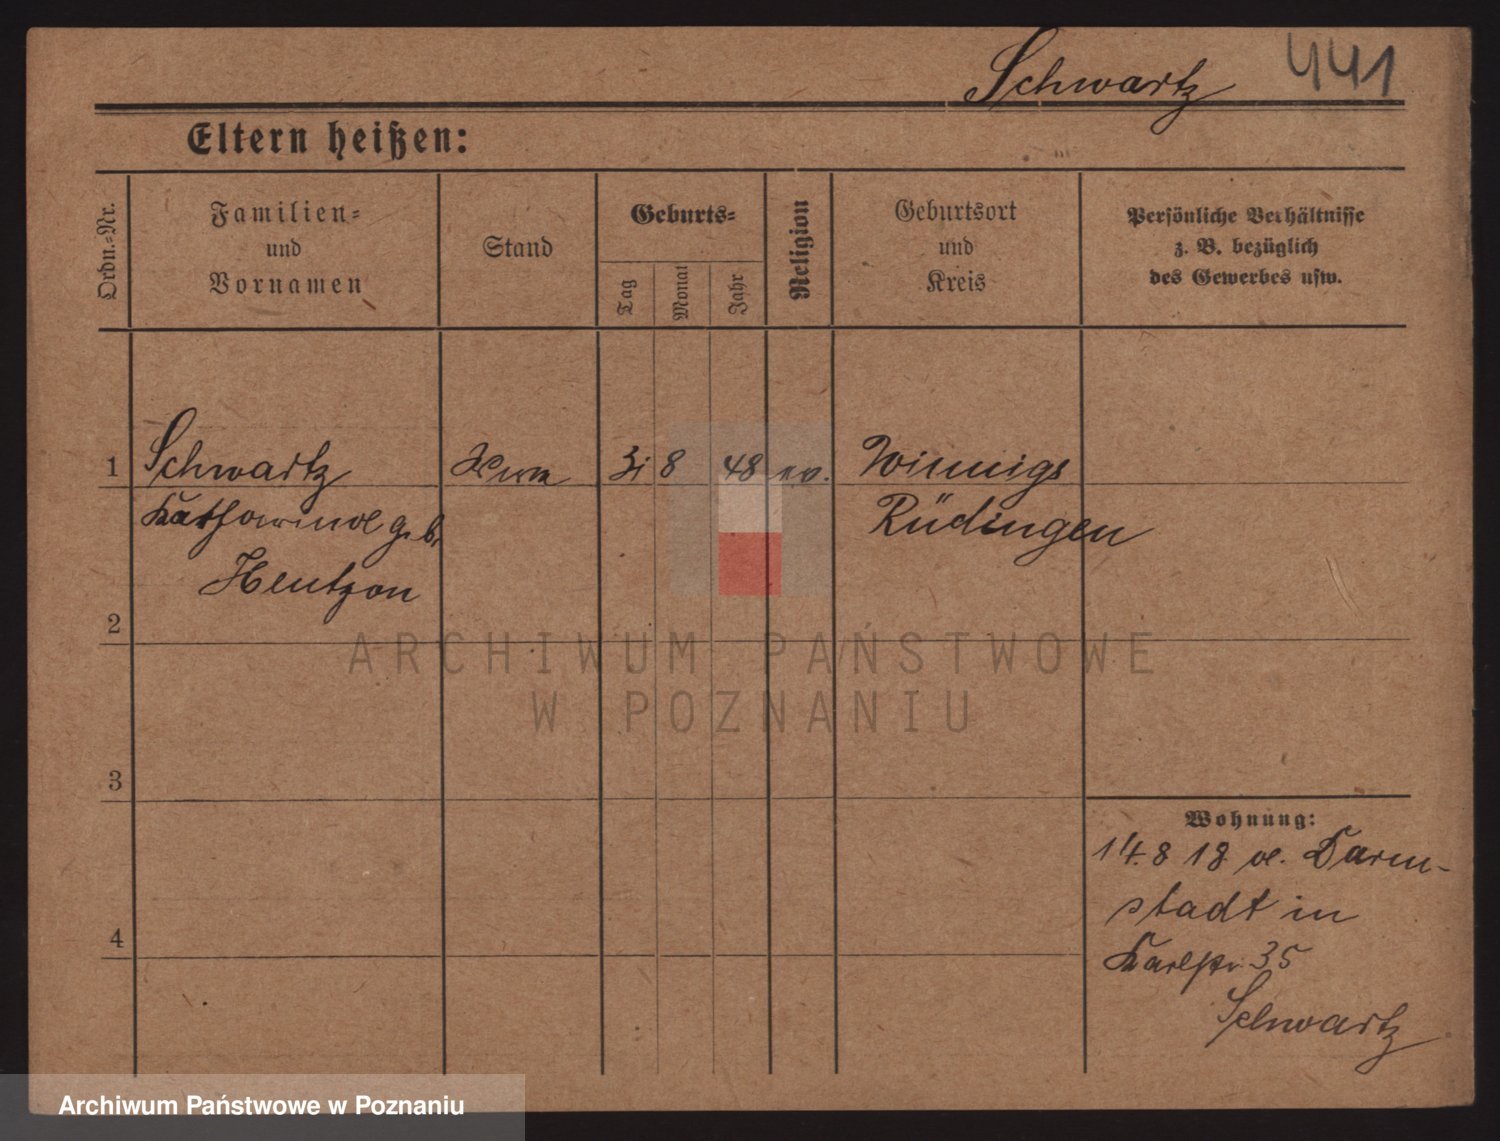 Schwartz 441
Eltern heißen:
Ordn.-Nr.
Familien-
und
Vornamen
Stand
Geburts-
Tag
Monat
Jahr
Religion
Geburtsort
und
Kreis
Persönliche Verhältnisse
z. B. bezüglich
des Gewerbes usw.
1 Schwartz Wwe 31 8 48 ev.
Katharina geb.
Hentzon
Rüdingen
2
3
4
ARCHIWUM PAŃSTWOWE
W POZNANIU
Wohnung:
14. 8 18 a. Darm-
stadt in
Karlstr. 35
Schwartz
Archiwum Państwowe w Poznaniu